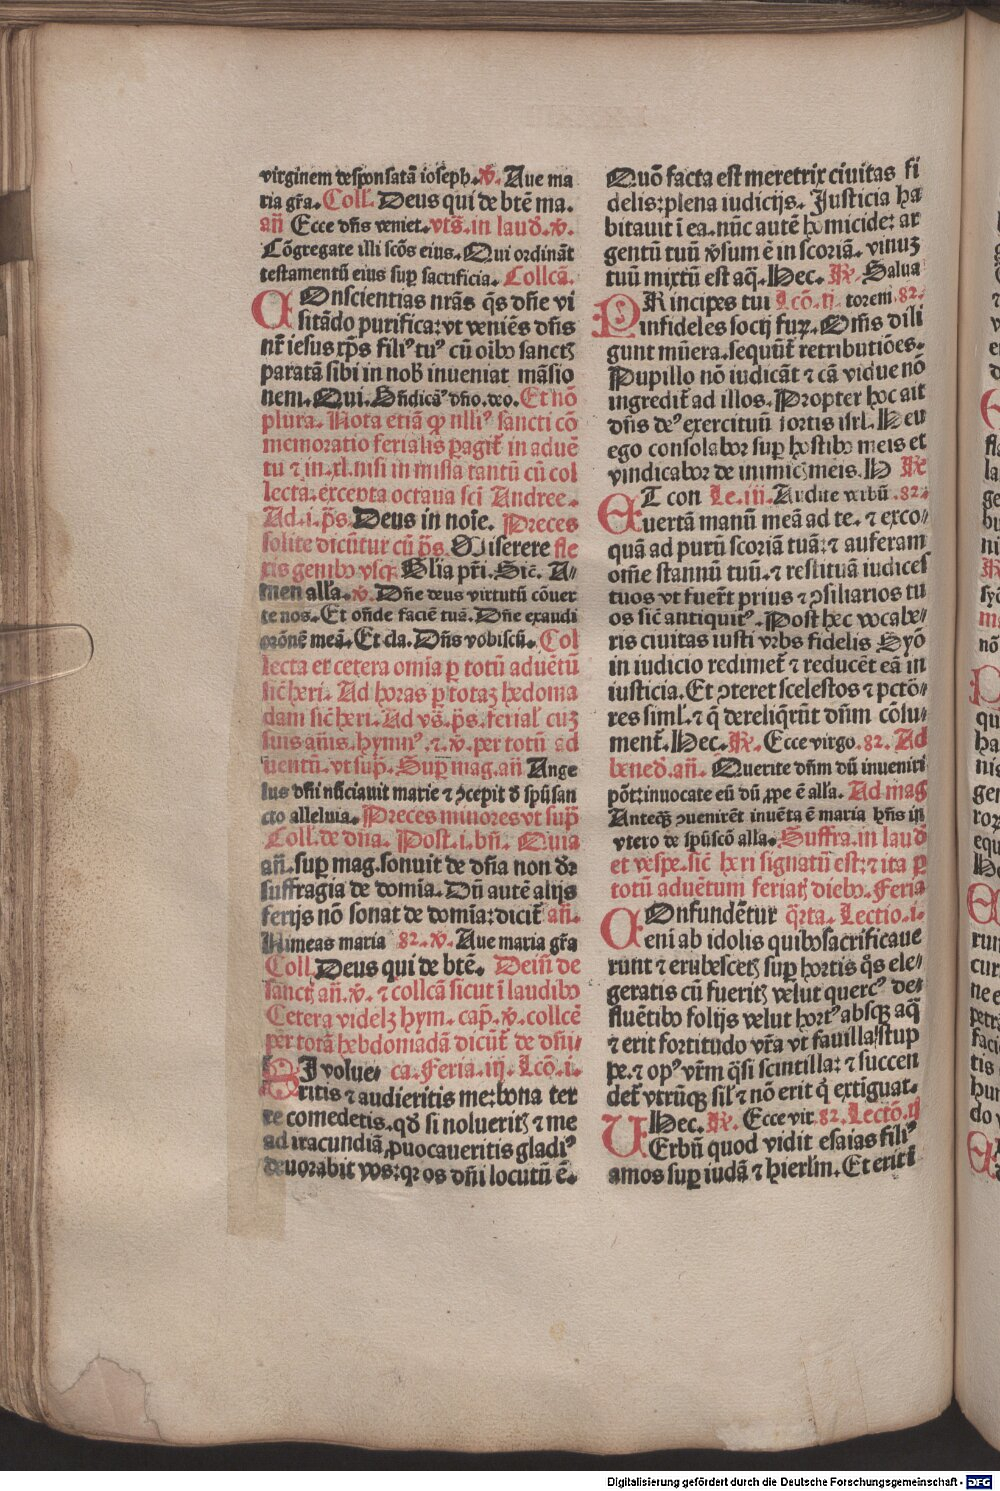 virginem desponsatā ioseph. v̄. Aue ma
ria gr̄a. Coll̄. Deus qui de btē ma.
an̄ Ecce dn̄s veniet. vts̄. in laud̄. v̄.
Cōgregate illi scōs eius. Qui ordināt
testamentū eius sup̄ sacrificia. Collcā.
COnscientias nrās q̄s dn̄e vi
sitādo purifica: vt veniēs dn̄s
nr̄ iesus xp̄s filiꝰ tuꝰ cū oībꝰ sanctꝭ
paratā sibi in nob̄ inueniat māsio
nem. Qui. Bn̄dicāꝰ dn̄o. deo. Et nō
plura. Nota etiā ꝙ nlliꝰ sancti cō
memoratio ferialis ꝑagit̄ in aduē
tu ⁊ in .xl. nisi in missa tantū cū col
lecta. excepta octaua sci Andree.
Ad .i. ps̄. Deus in noīe. Preces
solite dicūtur cū ps̄. Miserere fle
xis genibꝰ vsqꝫ Gl̄ia pr̄i. Sic̄. A-
men all̄a. v̄. Dn̄e deus virtutū cōuer
te nos. Et on̄de faciē tuā. Dn̄e exaudi
orōnē meā. Et cla. Dn̄s vobiscū. Col
lecta et cetera om̄ia ꝑ totū aduētū
sic̄ heri. Ad horas ꝑ totaꝫ hedoma
dam sic̄ heri. Ad vs̄. ps̄. ferial̄ cuꝫ
suis an̄is. hymnꝰ. ⁊. v̄. per totū ad
uentū. vt sup̄. Sup̄ mag. an̄ Ange
lus dn̄i nūciauit marie ⁊ ꝯcepit d̄ spūsan
cto alleluia. Preces minores vt sup̄
Coll̄. de dn̄a. Post .i. bn̄. Quia
an̄. sup̄ mag. sonuit de dn̄a non dr̄
suffragia de domīa. Dū autē alijs
ferijs nō sonat de domīa: dicit̄ an̄.
Ne timeas maria 82. v̄. Aue maria gr̄a
Coll̄. Deus qui de btē. Dein̄ de
sanctꝭ an̄. v̄. ⁊ collcā sicut ī laudibꝰ
Cetera videlꝫ hym. cap̄. v̄. collcē
per totā hebdomadā dicūt̄ de dn̄i-
SI volue- ca. Feria .iij. Lcō. i.
ritis ⁊ audieritis me: bona ter
re comedetis. qd̄ si nolueritꝭ ⁊ me
ad iracundiā ꝓuocaueritis gladiꝰ
deuorabit vos: qꝛ os dn̄i locutū ē.
Quō facta est meretrix ciuitas fi
delis: plena iudicijs. Justicia ha
bitauit ī ea. nūc autē homicide: ar
gentū tuū v̄sum ē in scoriā. vinuꝫ
tuū mixtū est aq̄. Hec. R̄. Salua
PRincipes tui Lcō. ij. torem .82.
infideles socij furꝝ. Om̄s dili
gunt mūera. sequūt̄ retributiōes.
Pupillo nō iudicāt ⁊ cā vidue nō
ingredit̄ ad illos. Propter hoc ait
dn̄s deꝰ exercituū fortis isrl̄. Heu
ego consolabor sup̄ hostibꝰ meis et
vindicabor de inimicꝭ meis. H R̄
ET con Le. iij. Audite verbū .82.
uertā manū meā ad te. ⁊ exco-
quā ad purū scoriā tuā: ⁊ auferam
om̄e stannū tuū. ⁊ restituā iudices
tuos vt fuert̄ prius ⁊ ꝯsiliarios tu
os sic̄ antiquitꝰ. Post hec vocabe-
ris ciuitas iusti vrbs fidelis Syō
in iudicio redimet̄ ⁊ reducēt eā in
iusticia. Et ꝯteret scelestos ⁊ pctō-
res siml̄. ⁊ q̄ dereliq̄rūt dn̄m cōsu-
ment̄. Hec. R̄. Ecce virgo. 82. Ad
bened̄. an̄. Querite dn̄m dū inueniri
pōt: inuocate eū dū ꝓpe ē all̄a. Ad mag
Anteqꝫ ꝯuenirēt inuēta ē maria hn̄s in
vtero de spūscō alla. Suffra. in laud̄
et vespe. sic̄ heri signatū est: ⁊ ita ꝑ
totū aduētum feriatꝭ diebꝰ. Feria
COnfundētur q̄rta. Lectio .i.
enī ab idolis quibꝰ sacrificaue
runt ⁊ erubescetꝭ sup̄ hortis q̄s ele-
geratis cū fueritꝭ velut quercꝰ de-
fluētibꝰ folijs velut hortꝰ absqꝫ aq̄
⁊ erit fortitudo vr̄a vt fauilla stup
pe. ⁊ opꝰ vr̄m q̄si scintilla: ⁊ succen
det̄ vtrūqꝫ sil̄ ⁊ nō erit q̄ extiguat.
Hec. R̄. Ecce vir. 82. Lectō. ij
VErbū quod vidit esaias filiꝰ
amos sup̄ iudā ⁊ hierlm̄. Et erit ī
Digitalisierung gefördert durch die Deutsche Forschungsgemeinschaft - DFG